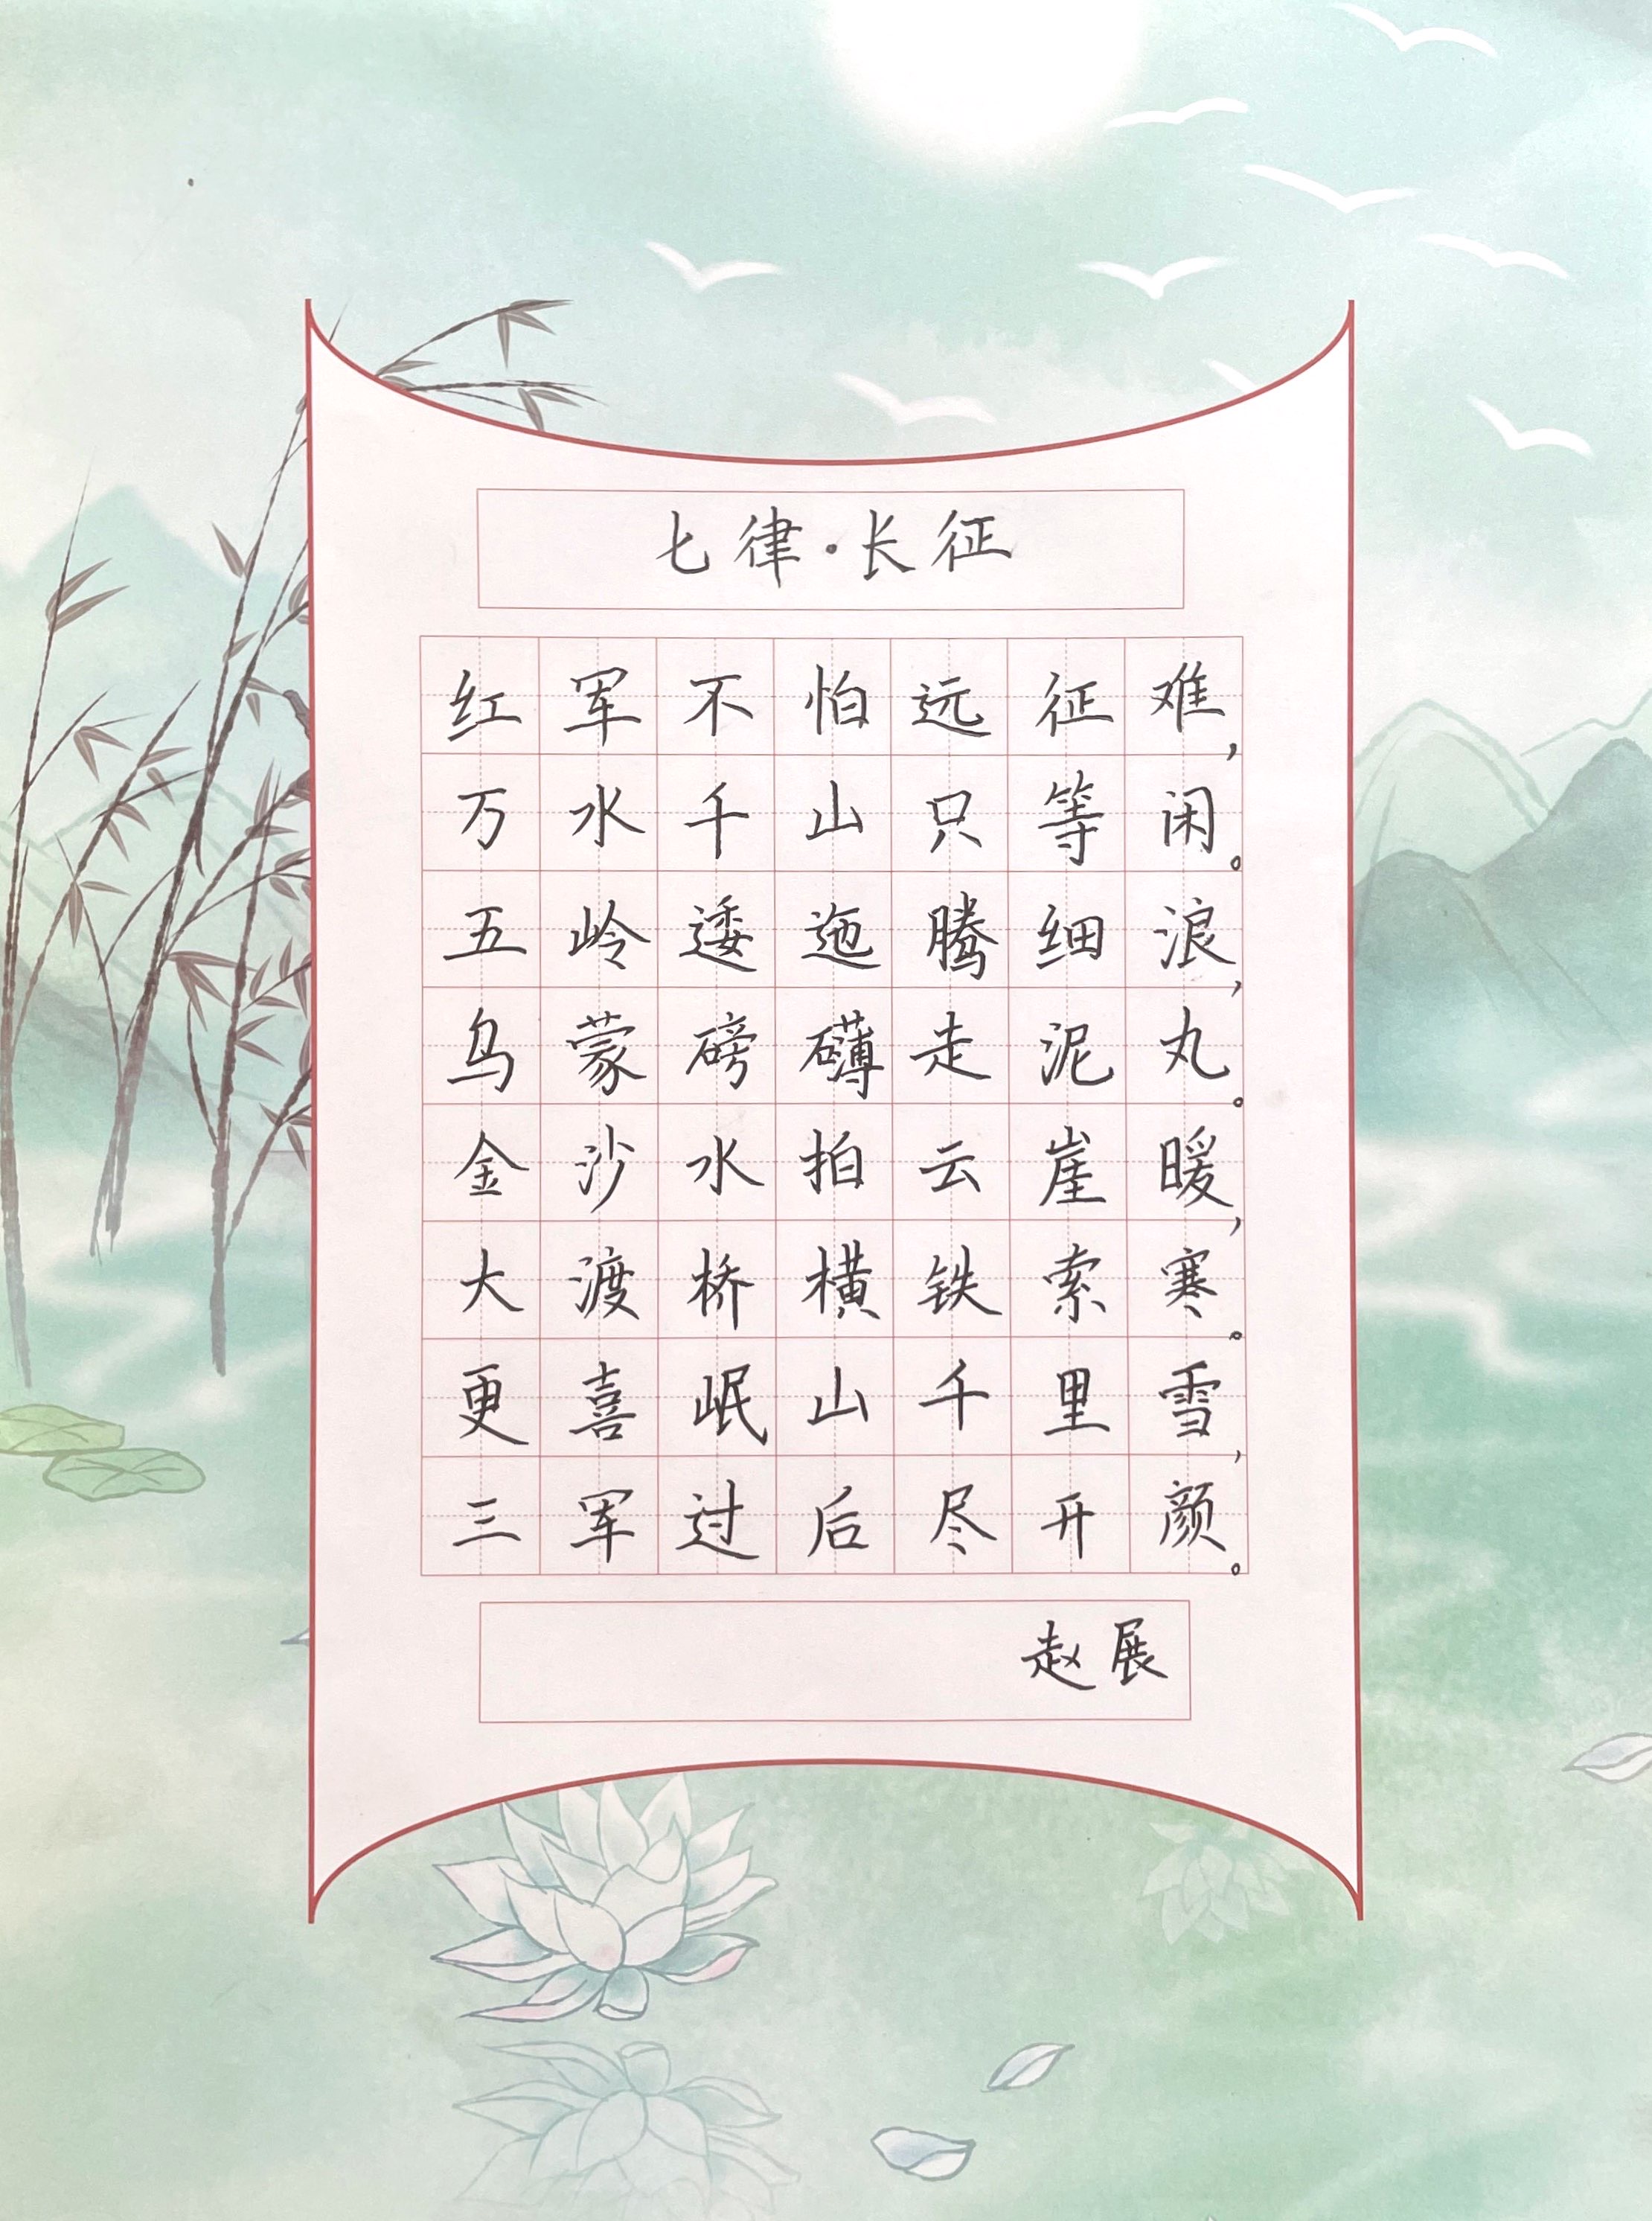 七律·长征
红军不怕远征难，
万水千山只等闲。
五岭逶迤腾细浪，
乌蒙磅礴走泥丸。
金沙水拍云崖暖，
大渡桥横铁索寒。
更喜岷山千里雪，
三军过后尽开颜。
赵展